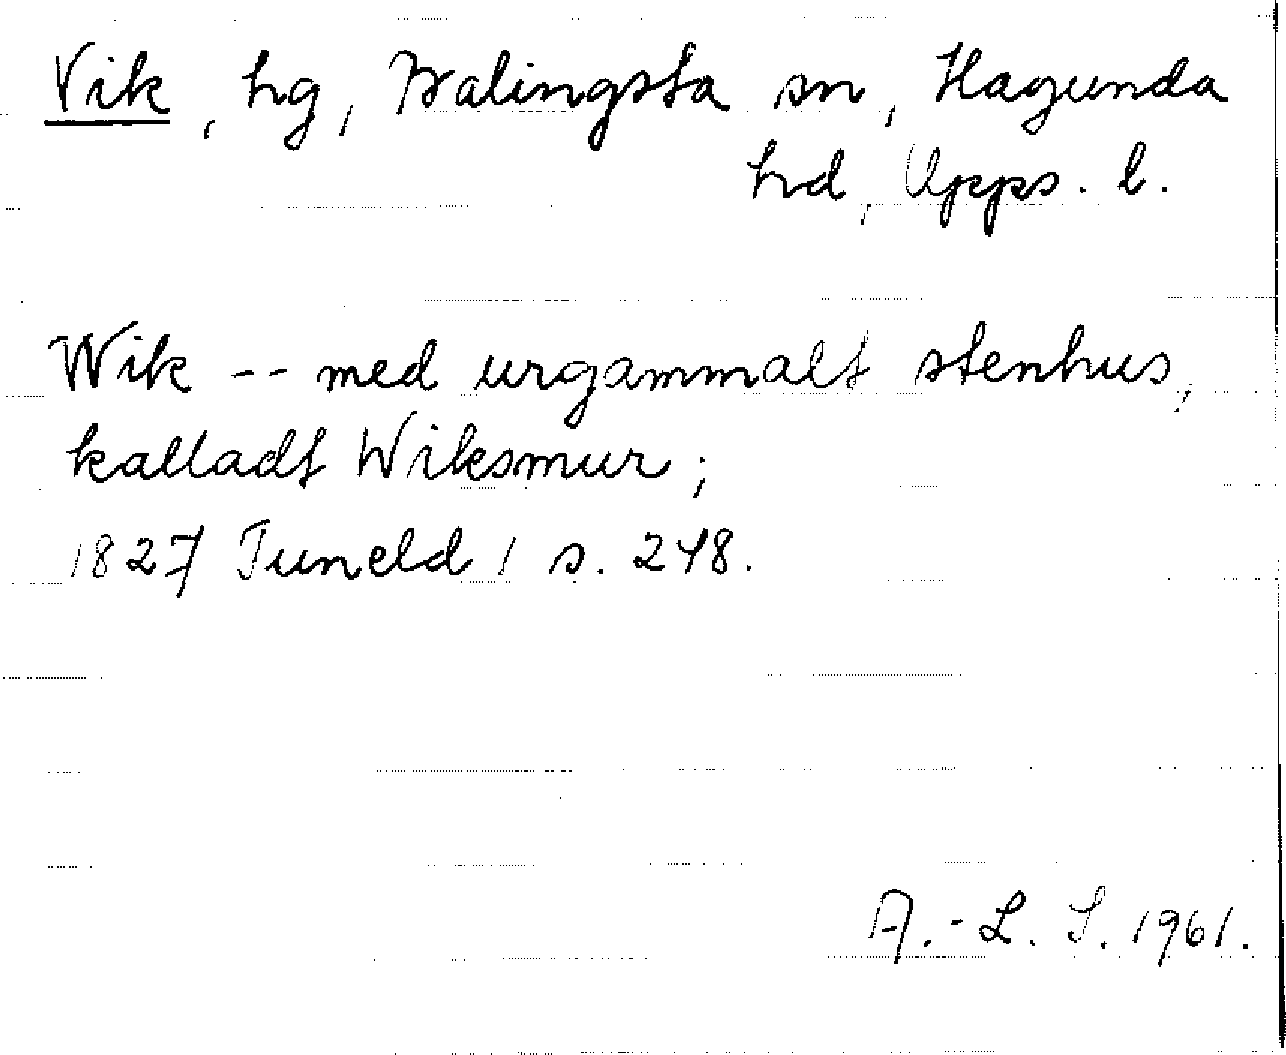 Vik, hg, Balingsta sn, Hagunda
hd, Upps. l.
Wik -- med urgammalt stenhus,
kalladt Wiksmur;
1827 Tuneld 1 s. 248.
A.-L. S. 1961.